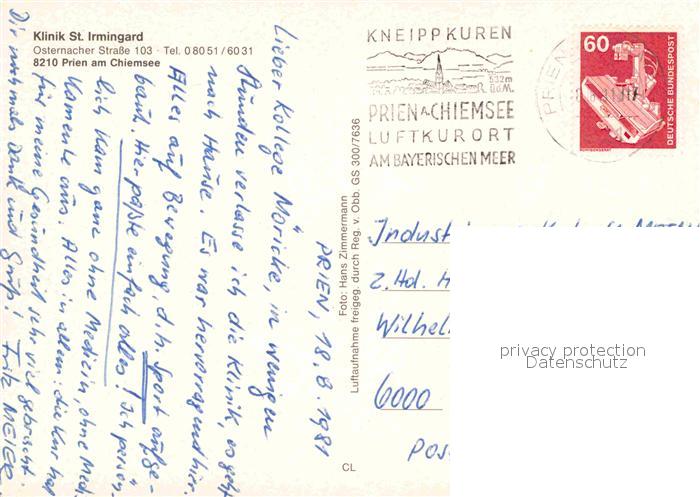 Klinik St. Irmingard
Osternacher Straße 103 · Tel. 0 80 51 / 60 31
8210 Prien am Chiemsee
KNEIPPKUREN
532m
ü.d.M.
PRIEN A. CHIEMSEE
LUFTKURORT
AM BAYERISCHEN MEER
PRIEN
60
DEUTSCHE BUNDESPOST
RÖNTGENGERÄT
PRIEN, 18.8.1981
Lieber Kollege Möricke, in wenigen
Stunden verlasse ich die Klinik, es geht
nach Hause. Es war hervorragend hier.
Alles auf Bewegung, d.h. Sport aufge-
baut. Hier paßte einfach alles! Ich persön-
lich kam ganz ohne Medizin, ohne Medi-
kamente aus. Alles in allem: die Kur hat
für meine Gesundheit sehr viel gebracht.
Dir nochmals Dank und Gruß! Fritz MEIER
Foto: Hans Zimmermann
Luftaufnahme freigeg. durch Reg. v. Obb. GS 300/7636
CL
z. Hd. H
Wilhel
6000
Pos
privacy protection
Datenschutz